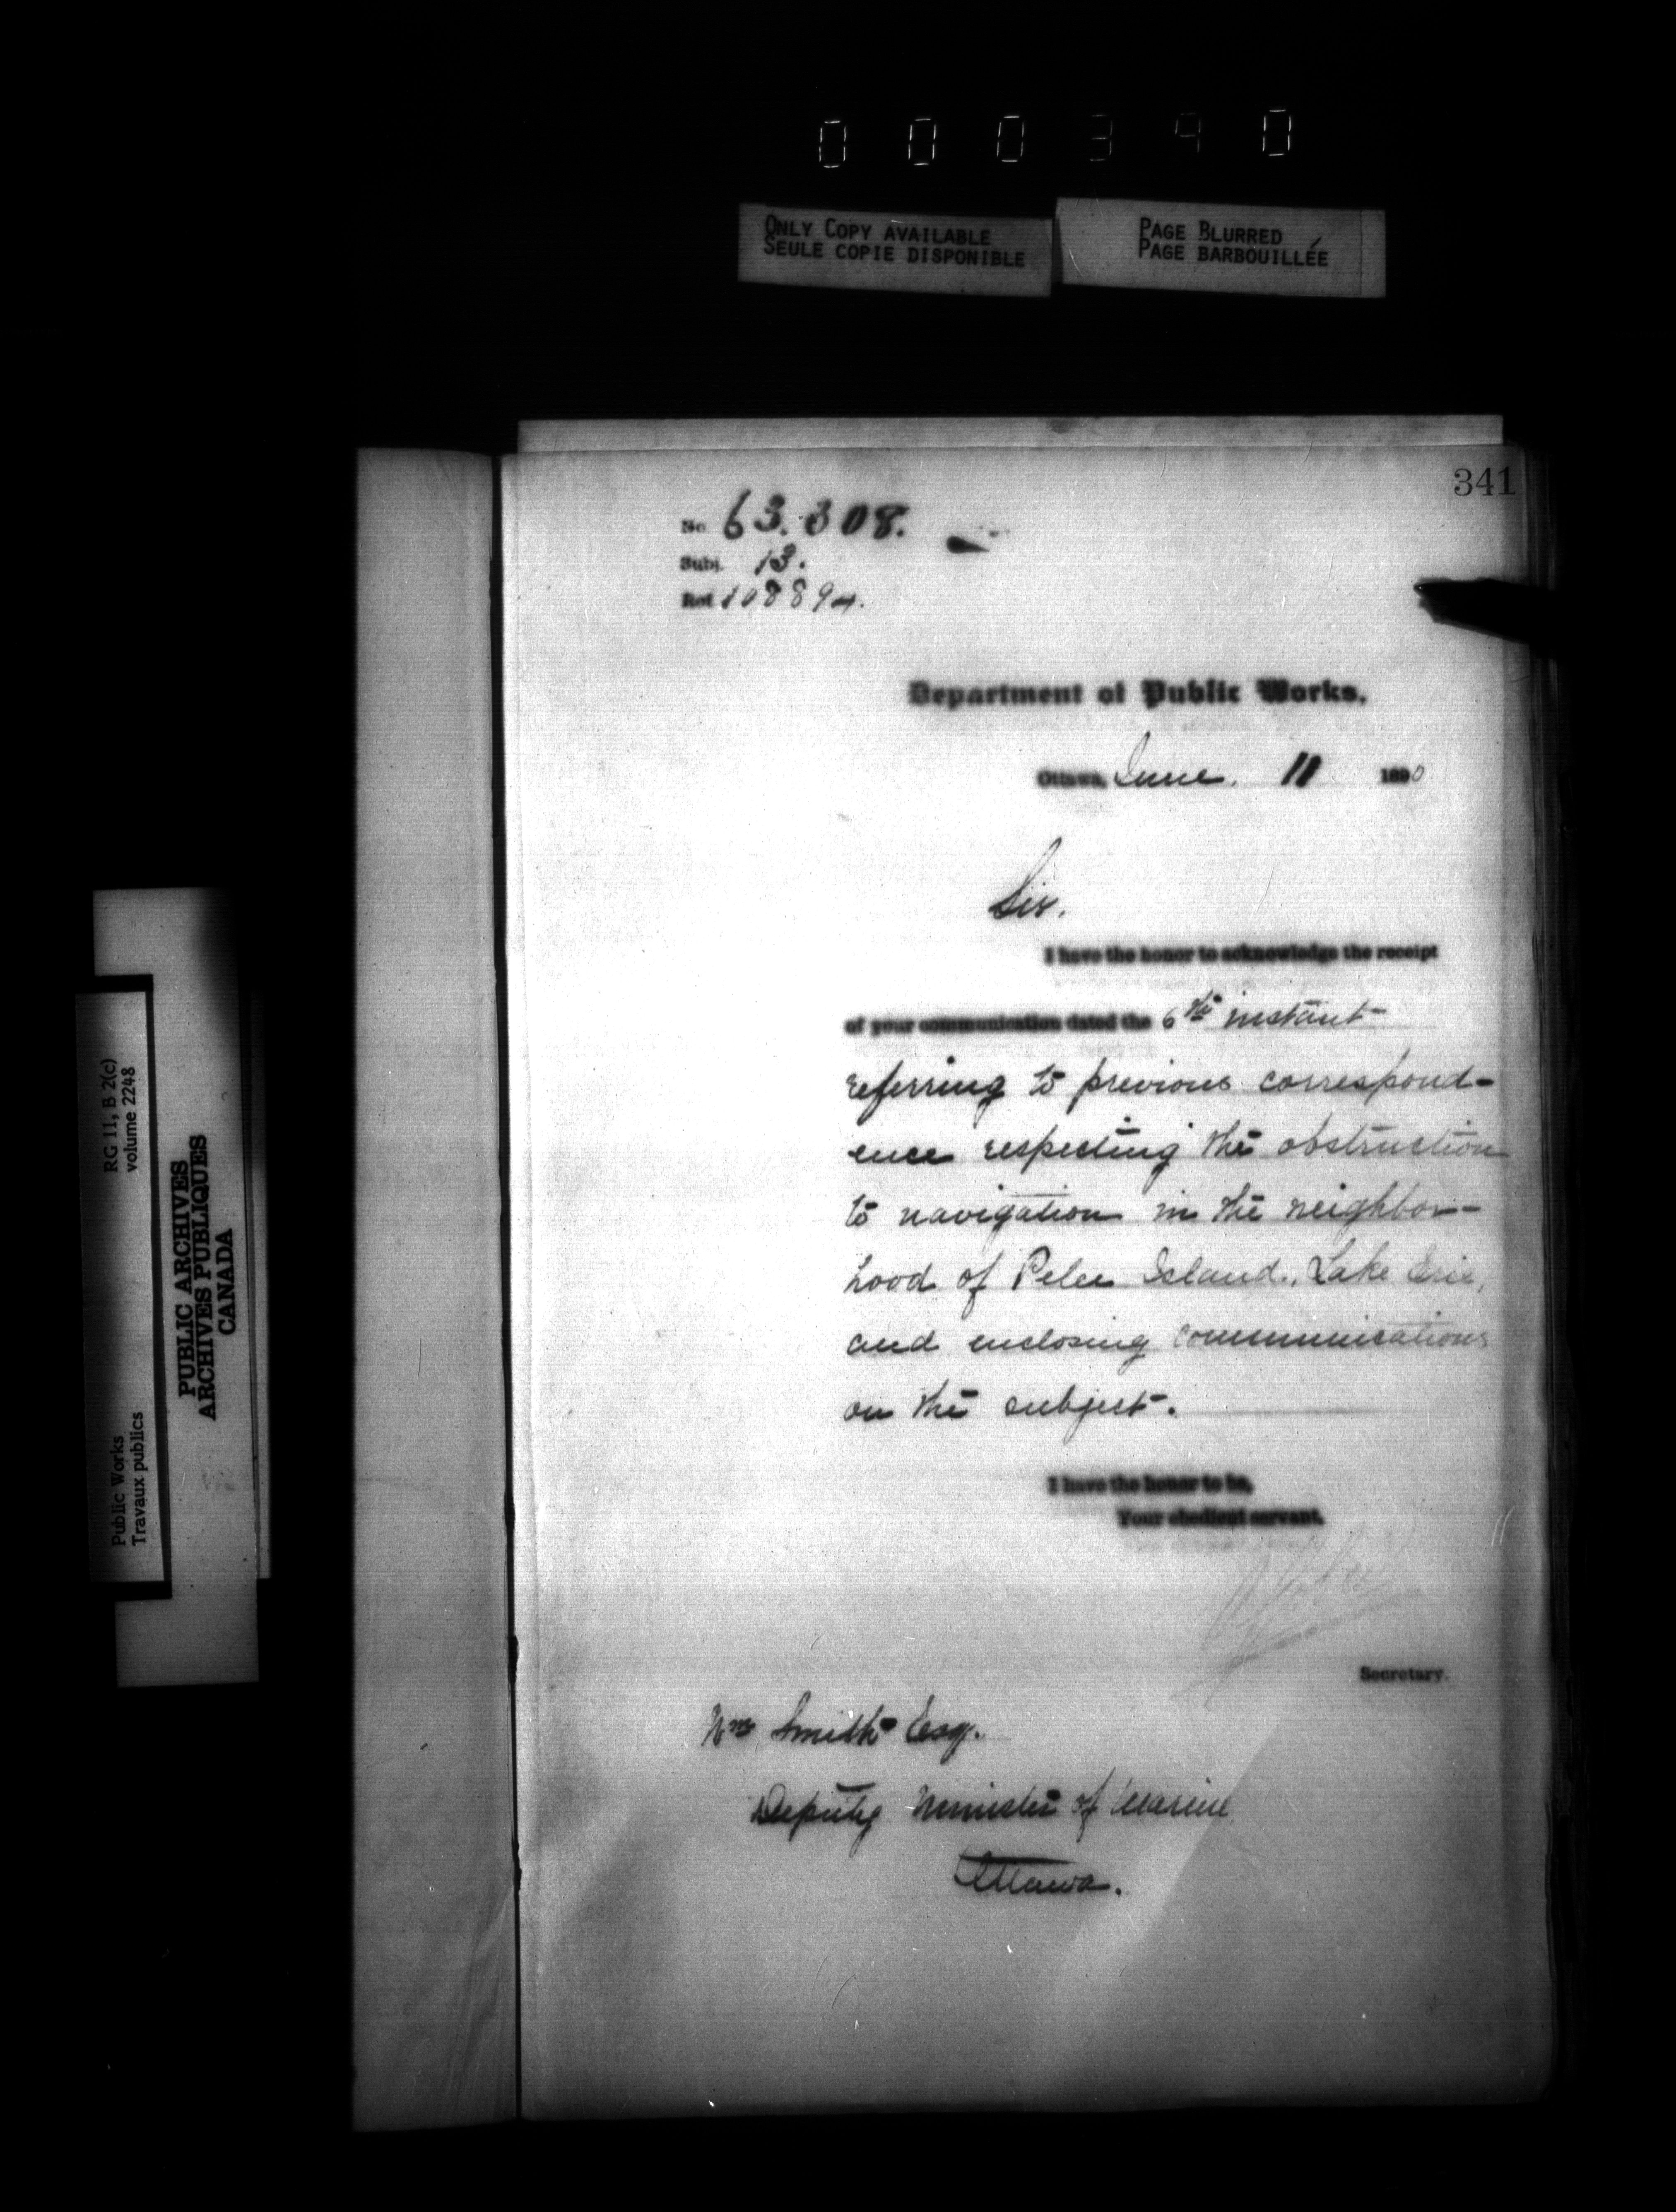 000340
ONLY COPY AVAILABLE
SEULE COPIE DISPONIBLE
PAGE BLURRED
PAGE BARBOUILLÉE
341
No 63.308.
Subj. 13.
Ref 108894.
Department of Public Works.
Ottawa, June. 11 1890
Sir.
I have the honor to acknowledge the receipt
of your communication dated the 6th instant
referring to previous correspond-
ence respecting the obstruction
to navigation in the neighbor-
hood of Pelee Island, Lake Erie,
and enclosing communications
on the subject.
I have the honor to be,
Your obedient servant,
Secretary.
Wm Smith Esq.
Deputy Minister of Marine
Ottawa.
RG 11, B 2(c)
volume 2248
Public Works
Travaux publics
PUBLIC ARCHIVES
ARCHIVES PUBLIQUES
CANADA